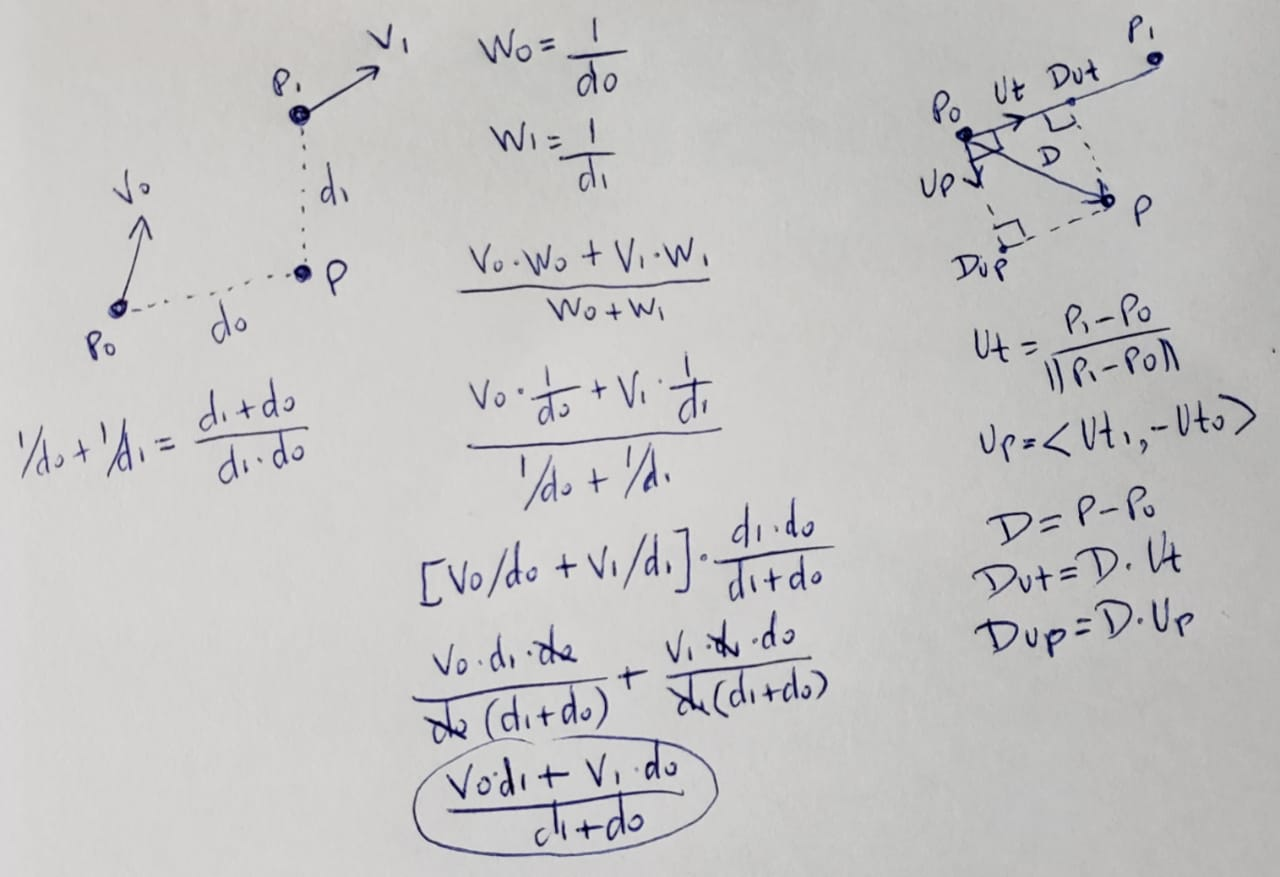 V₁
P₁
d₁
V₀
P
P₀
d₀
1/d₀ + 1/d₁ = (d₁ + d₀)/(d₁ · d₀)
W₀ = 1/d₀
W₁ = 1/d₁
(V₀ · W₀ + V₁ · W₁)/(W₀ + W₁)
(V₀ · 1/d₀ + V₁ · 1/d₁)/(1/d₀ + 1/d₁)
[V₀/d₀ + V₁/d₁] · (d₁ · d₀)/(d₁ + d₀)
(V₀ · d₁ · d₀)/(d₀ (d₁ + d₀)) + (V₁ · d₁ · d₀)/(d₁ (d₁ + d₀))
(V₀ · d₁ + V₁ · d₀)/(d₁ + d₀)
P₁
Ut Dut
P₀
D
Up
P
Dup
Ut = (P₁ - P₀)/||P₁ - P₀||
Up = <Ut₁, -Ut₀>
D = P - P₀
Dut = D · Ut
Dup = D · Up